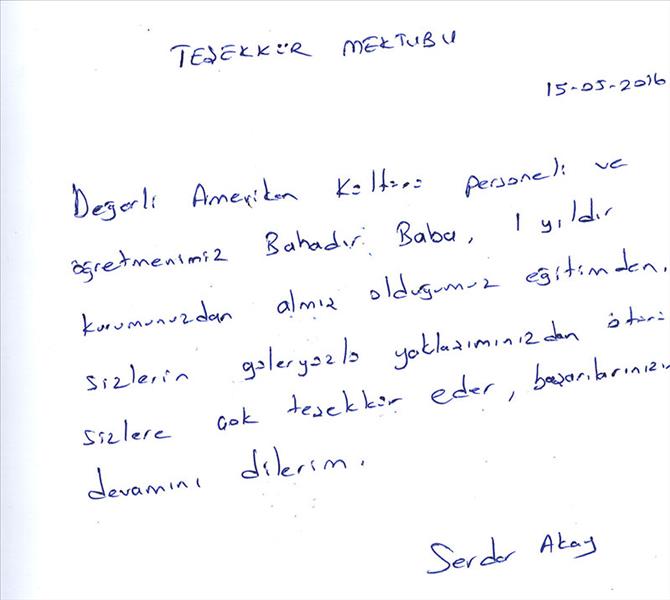 TEŞEKKÜR MEKTUBU
15-05-2016
Değerli Amerikan Kültürü personeli ve
öğretmenimiz Bahadır Baba, 1 yıldır
kurumunuzdan almış olduğumuz eğitimden,
sizlerin güleryüzlü yaklaşımınızdan ötürü
sizlere çok teşekkür eder, başarılarınızın
devamını dilerim.
Serdar Akay